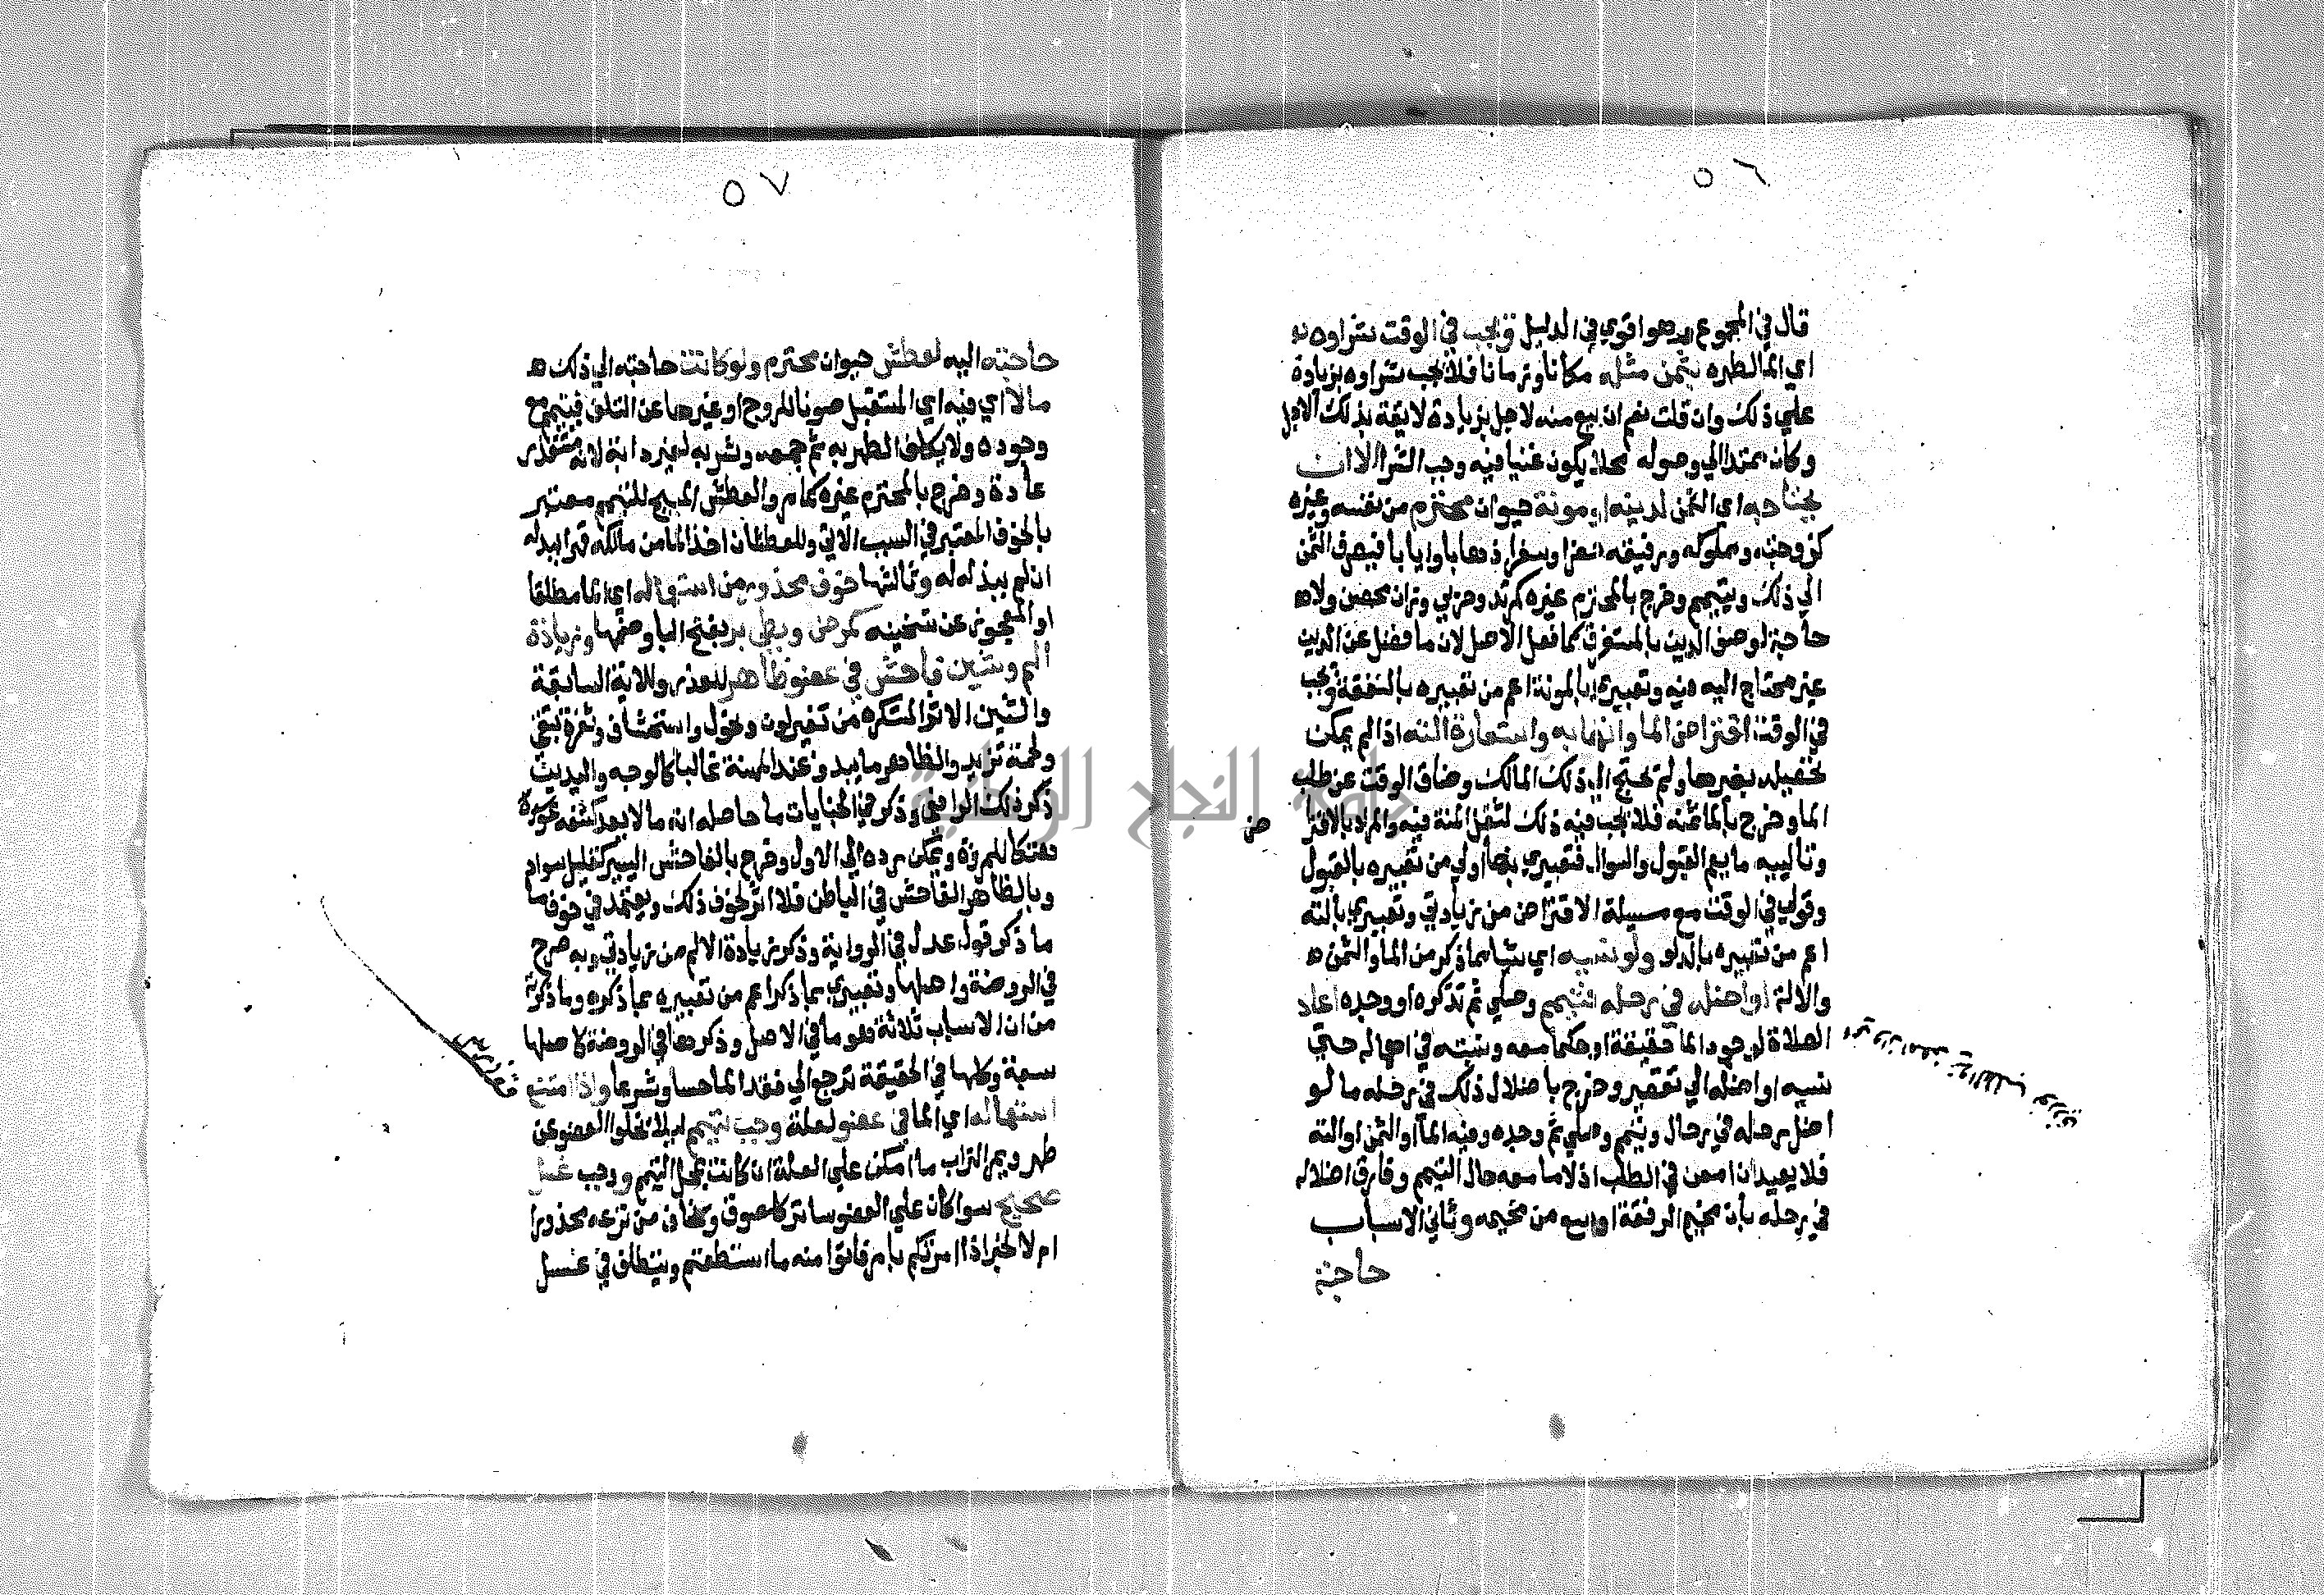 ٥٦
قال في المجموع وهو اقوي في الدليل ويجب في الوقت شراوه
اي الما لطهره بثمن مثله مكانا وزمانا فلا يجب شراوه بزيادة
علي ذلك وان قلت نعم ان بيع منه لاجل بزيادة لايقة بذلك الاجل
وكان ممتدا الي وصوله محلا يكون غنيا فيه وجب الشرا الا ان
يحتاجه اي الثمن لدينه او مونة حيوان محترم من نفسه وغيره
كزوجته ومملوكه ورفيقه حضرا وسفرا ذهابا وايابا فيصرف الثمن
الي ذلك ويتيمم وخرج بالمحترم غيره كمرتد وحربي وزان محصن ولا
حاجة لوصف الدين بالمستغرق كما فعل الاصل لان ما فضل عن الدين
غير محتاج اليه فيه وتعبيري بالمونة اعم من تعبيره بالنفقة ويجب
في الوقت اقتراض الما واتهابه واستعارة الته اذا لم يمكن
تحصيله بغيرها ولم يحتج الي ذلك المالك وضاق الوقت عن طلب
الما وخرج بالما ثمنه فلا يجب فيه ذلك لثقل المنة فيه والمراد بالاقترا
ض
وتالييه ما يعم القبول والسوال فتعبيري بها اولي من تعبيره بالقبول
وقولي في الوقت مع مسيلة الاقتراض من زيادتي وتعبيري بالته
اعم من تعبيره بالدلو ولو نسيه اي شيا مما ذكر من الما والثمن
والالة او اضله في رحله فتيمم وصلي ثم تذكره او وجده اعاد
الصلاة لوجود الما حقيقة او حكما معه ونسبته في اهماله حتي
نسيه او اضله الي تقصير وخرج باضلال ذلك في رحله ما لو
اضل رحله في رحال وتيمم وصلي ثم وجده وفيه الما او الثمن او الته
فلا يعيد ان امعن في الطلب اذ لا ما معه حال التيمم وفارق اضلاله
في رحله بان مخيم الرفقة اوسع من مخيمه وثاني الاسباب
حاجة
٥٧
حاجته اليه لعطش حيوان محترم ولو كانت حاجته الي ذلك
مالا اي فيه اي المستقبل صونا للروح او غيرها عن التلف فيتيمم مع
وجوده ولا يكلف الطهر به ثم جمعه وشربه لغير دابة لانه مستقذر
عادة وخرج بالمحترم غيره كما مر والعطش المبيح للتيمم معتبر
بالخوف المعتبر في السبب الاتي وللعطشان اخذ الما من مالكه قهرا ببدله
ان لم يبذله له وثالثها خوف محذور من استعماله اي الما مطلقا
او المعجوز عن تسخينه كمرض وبطي بر بفتح البا وضمها وزيادة
الم وشين فاحش في عضو ظاهر للعذر وللاية السابقة
والشين الاثر المستكره من تغير لون ونحول واستحشاف وثغرة تبقي
ولحمة تزيد والظاهر ما يبدو عند المهنة غالبا كالوجه واليدين
ذكر ذلك الرافعي وذكر في الجنايات ما حاصله انه ما لا يعد كشفه
هتكا للمروة ويمكن رده الي الاول وخرج بالفاحش اليسير كقليل سواد
وبالظاهر الفاحش في الباطن فلا اثر لخوف ذلك ويعتمد في خوف ما
ما ذكر قول عدل في الرواية وذكر زيادة الالم من زيادتي وبه صرح
في الروضة واصلها وتعبيري بما ذكر اعم من تعبيره بما ذكره وما ذكرته
من ان الاسباب ثلاثة هو ما في الاصل وذكرها في الروضة كاصلها
سبعة وكلها في الحقيقة ترجع الي فقد الما حسا وشرعا واذا امتنع
استعماله اي الما في عضو لعلة وجب تيمم ليلا يخلوا العضو عن
طهر ويمر التراب ما امكن علي العلة ان كانت بمحل التيمم ووجب غسل
صحيح سوا كان علي العضو ساتر كلصوق وكان من نزعه محذورا
ام لا لخبر اذا امرتكم بامر فاتوا منه ما استطعتم ويتطلف في غسل